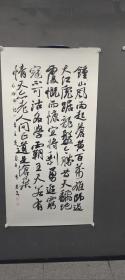 鐘山風雨起蒼黄百萬雄師過
大江虎踞龍盤今勝昔天翻地
覆慨而慷宜將剩勇追窮
寇不可沽名學霸王天若有
情天亦老人间正道是滄桑